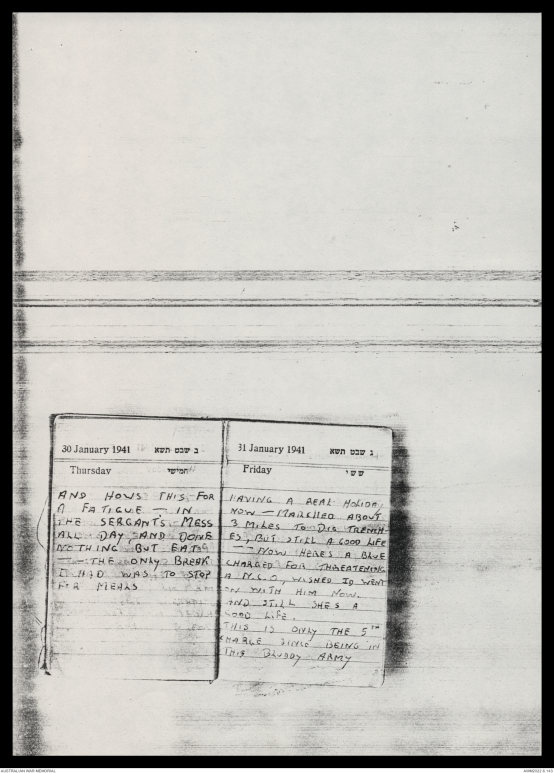 30 January 1941 ב שבט תשא
Thursday חמישי
AND HOWS THIS FOR
A FATIGUE — IN
THE SERGANTS MESS
ALL DAY AND DONE
NOTHING BUT EAT
— THE ONLY BREAK
I HAD WAS TO STOP
FOR MEALS
31 January 1941 ג שבט תשא
Friday ששי
HAVING A REAL HOLIDAY
NOW — MARCHED ABOUT
3 MILES TO DIG TRENCH
ES, BUT STILL A GOOD LIFE
— NOW HERES A BLUE
CHARGED FOR THREATENING
A N.C.O, WISHED ID WENT
ON WITH HIM NOW.
AND STILL SHE'S A
GOOD LIFE.
THIS IS ONLY THE 5TH
CHARGE SINCE BEING IN
THIS BLUDDY ARMY
AUSTRALIAN WAR MEMORIAL